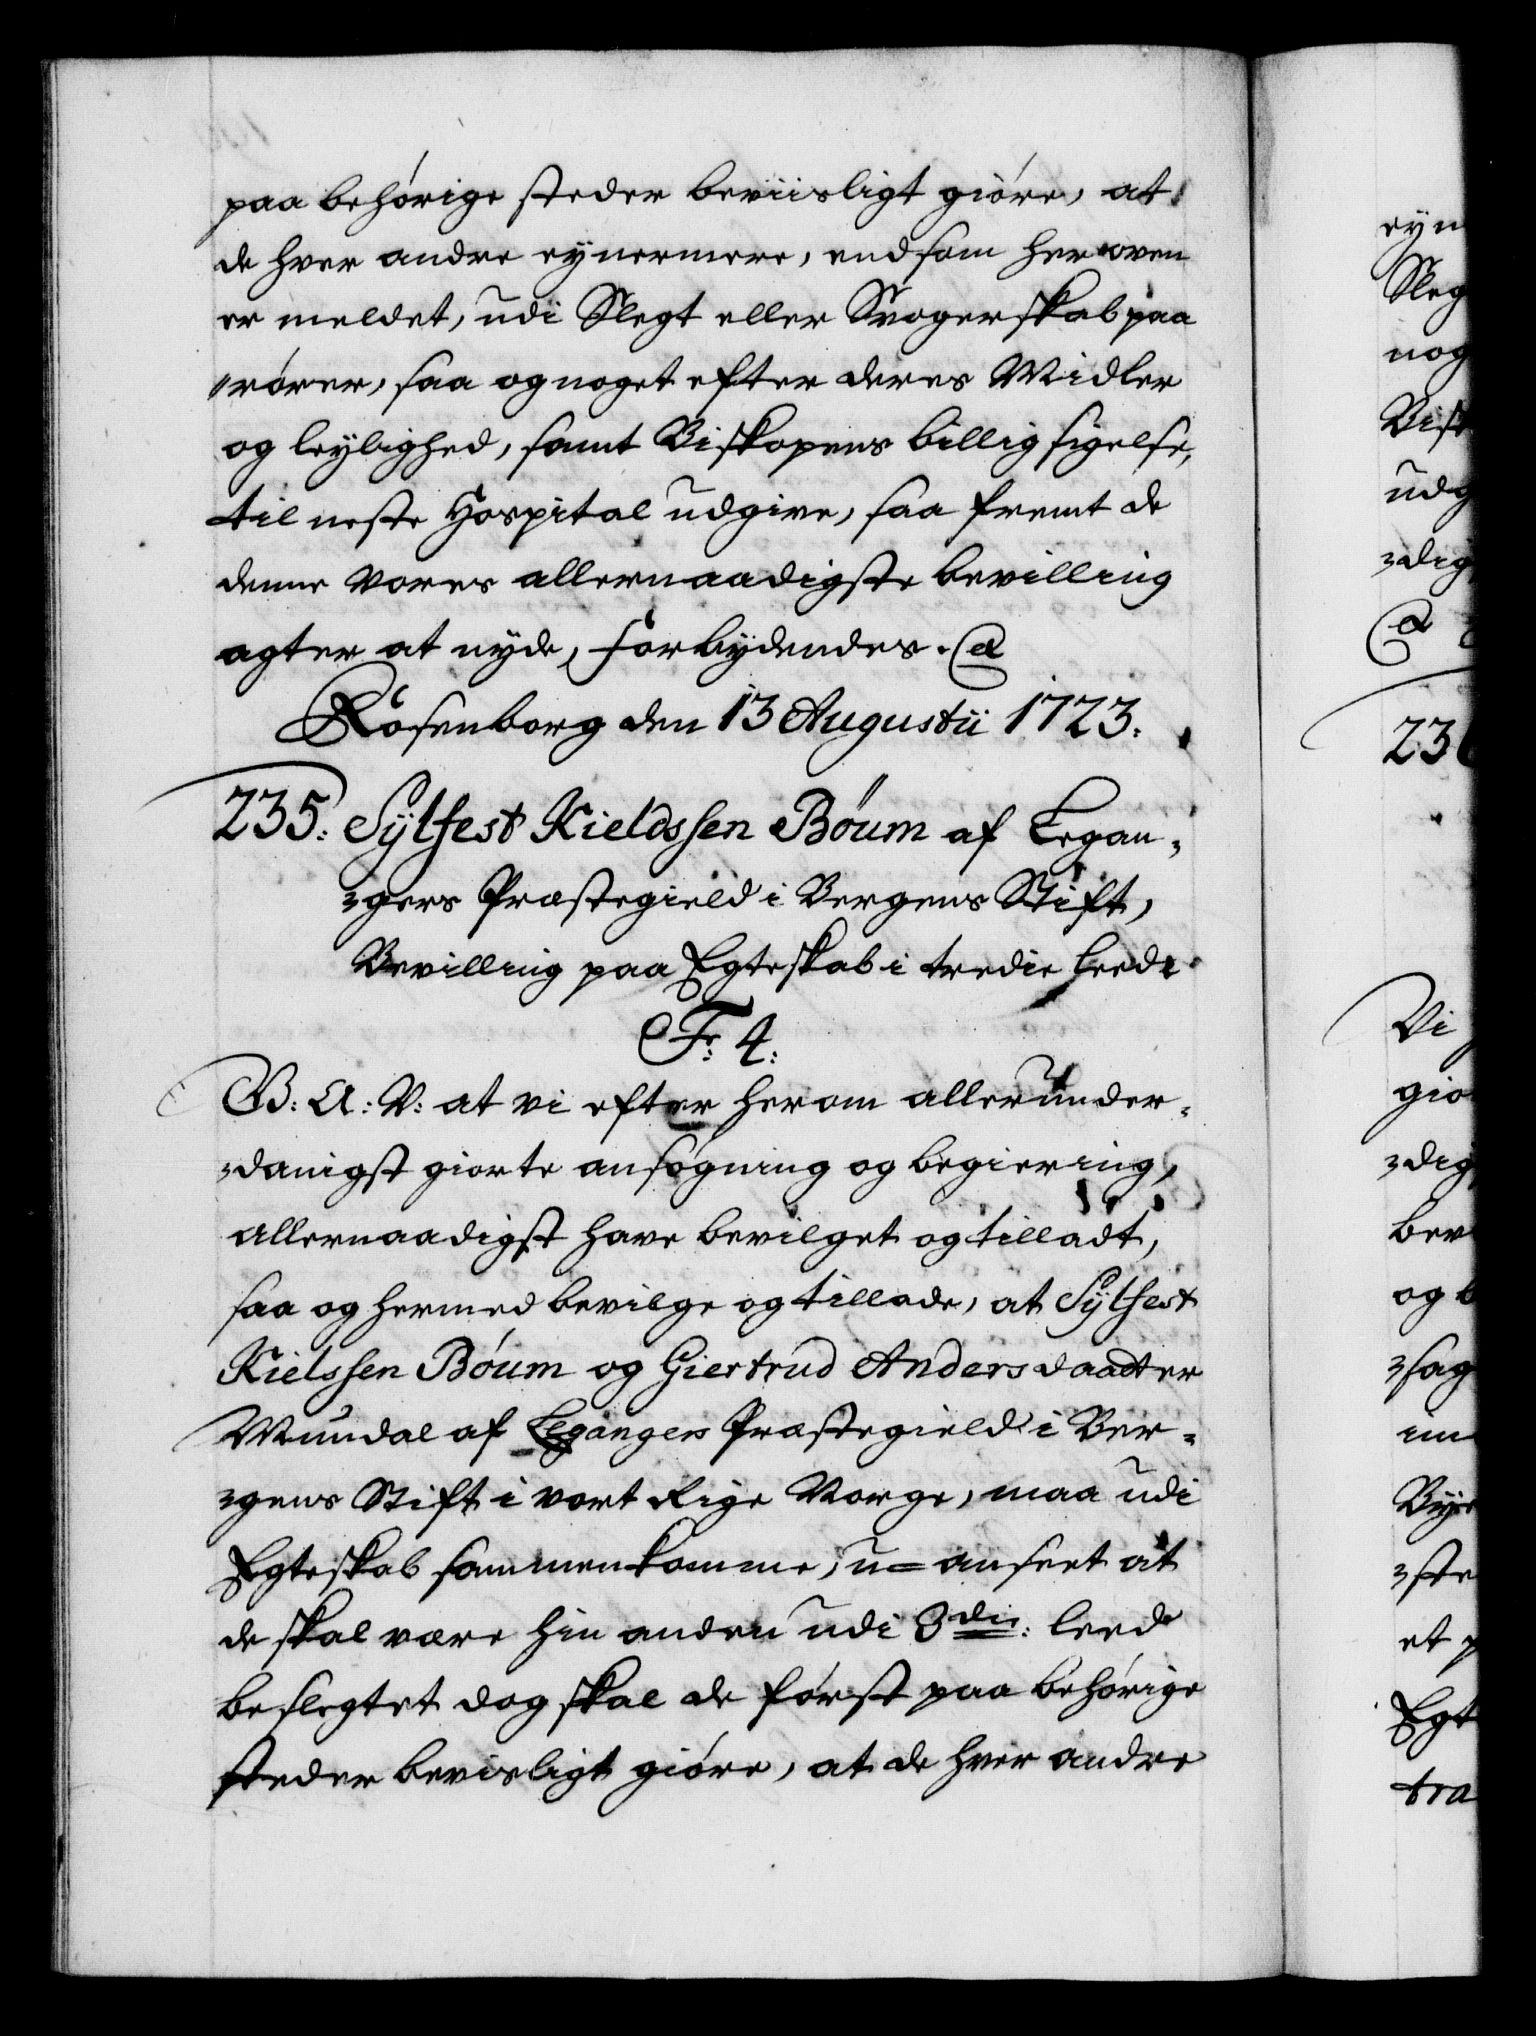 paa behörige steder beviisligt giöre, at
de hver andre ey nermere, end som her oven
er meldet, udi Slegt eller Svogerskab paa
rörer, saa og noget efter deres Midler
og leylighed, samt Biskopens billig sigelse,
til neste Hospital udgive, saa fremt de
denne vores allernaadigste bevilling
agter at nyde, Forbydendes. &
Rosenborg den 13 Augustii 1723.
235. Sÿlfest Kieldssen Böum af Legan-
gers Præstegield i Bergens Stift,
Bevilling paa Egteskab i tredie Leed
Fr: 4:
G: A: V: at vi efter herom allerunder-
danigst giorte ansögning og begiering,
allernaadigst have bevilget og tilladt,
saa og hermed bevilge og tillade, at Sÿlfest
Kielssen Böum og Giertrud Andersdaadter
Mundal af Leganger Præstegield i Ber-
gens Stift i vort Rige Norge, maa udi
Egteskab sammenkomme, u-anseet at
de skal være hin anden udi 3die: Leed
beslegtet dog skal de först paa behörige
steder bevisligt giöre, at de hver andre
eyn
Sleg
nog
Bisk
udg
dig
&
23
Vi
gio
dig
bev
og b
sag
im
Byе
ste
et p
Egt
tra